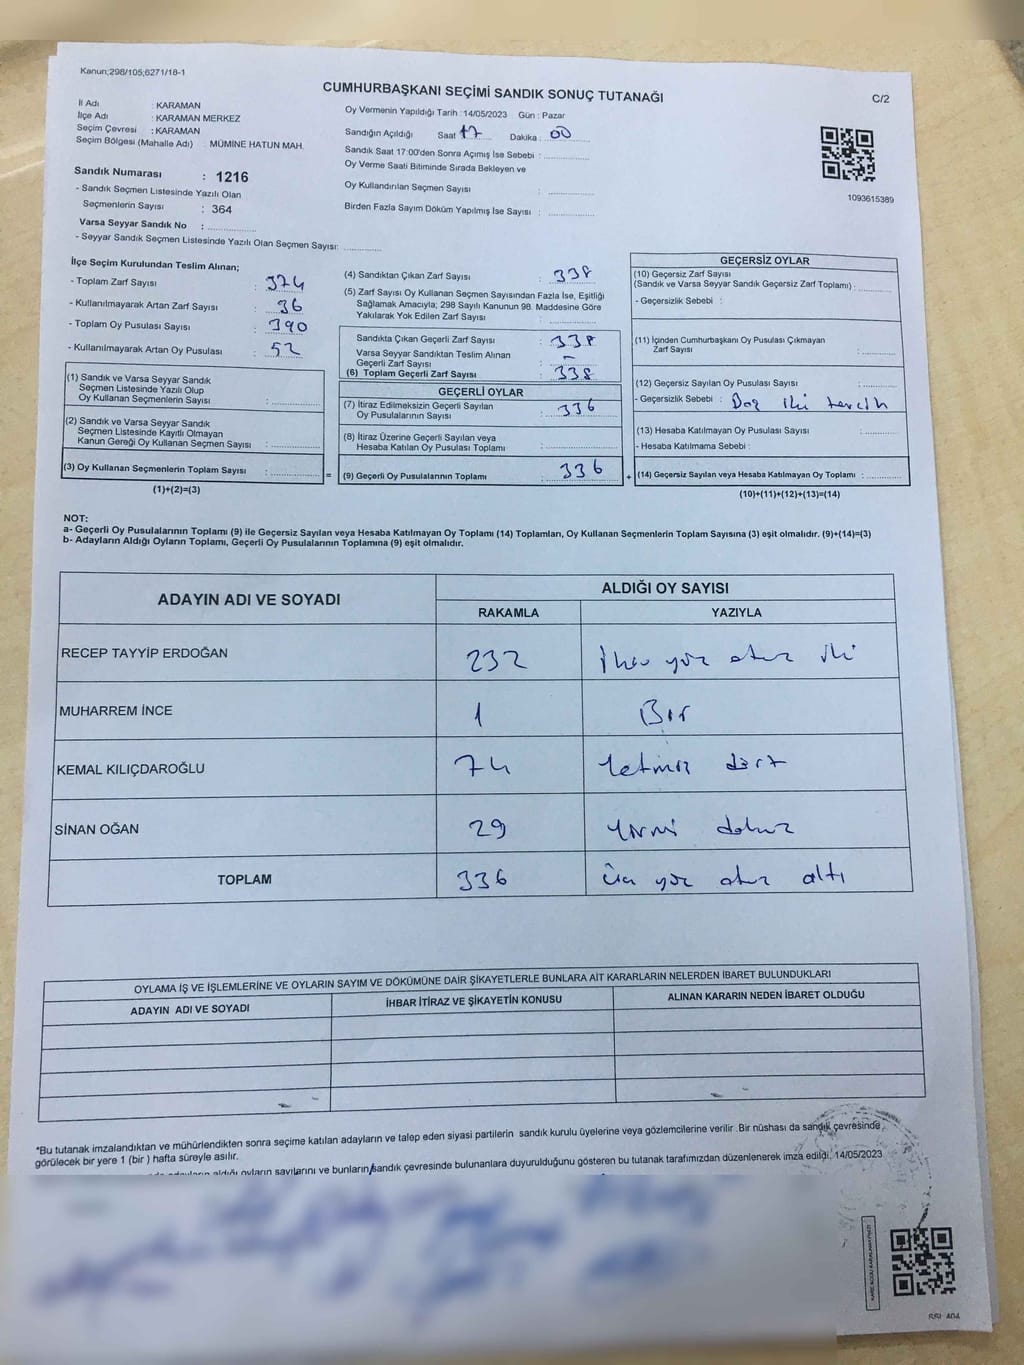 Kanun;298/105;6271/18-1
CUMHURBAŞKANI SEÇİMİ SANDIK SONUÇ TUTANAĞI
C/2
İl Adı : KARAMAN
İlçe Adı : KARAMAN MERKEZ
Seçim Çevresi : KARAMAN
Seçim Bölgesi (Mahalle Adı) : MÜMİNE HATUN MAH.
Sandık Numarası : 1216
- Sandık Seçmen Listesinde Yazılı Olan
Seçmenlerin Sayısı : 364
Varsa Seyyar Sandık No :
- Seyyar Sandık Seçmen Listesinde Yazılı Olan Seçmen Sayısı:
Oy Vermenin Yapıldığı Tarih :14/05/2023 Gün : Pazar
Sandığın Açıldığı Saat 17 Dakika : 00
Sandık Saat 17:00'den Sonra Açımış İse Sebebi :
Oy Verme Saati Bitiminde Sırada Bekleyen ve
Oy Kullandırılan Seçmen Sayısı :
Birden Fazla Sayım Döküm Yapılmış İse Sayısı :
1093615389
İlçe Seçim Kurulundan Teslim Alınan;
- Toplam Zarf Sayısı : 374
- Kullanılmayarak Artan Zarf Sayısı : 36
- Toplam Oy Pusulası Sayısı : 390
- Kullanılmayarak Artan Oy Pusulası : 52
(1) Sandık ve Varsa Seyyar Sandık
Seçmen Listesinde Yazılı Olup
Oy Kullanan Seçmenlerin Sayısı :
(2) Sandık ve Varsa Seyyar Sandık
Seçmen Listesinde Kayıtlı Olmayan
Kanun Gereği Oy Kullanan Seçmen Sayısı :
(3) Oy Kullanan Seçmenlerin Toplam Sayısı :
(1)+(2)=(3)
(4) Sandıktan Çıkan Zarf Sayısı : 338
(5) Zarf Sayısı Oy Kullanan Seçmen Sayısından Fazla İse, Eşitliği
Sağlamak Amacıyla; 298 Sayılı Kanunun 98. Maddesine Göre
Yakılarak Yok Edilen Zarf Sayısı :
Sandıkta Çıkan Geçerli Zarf Sayısı : 338
Varsa Seyyar Sandıktan Teslim Alınan
Geçerli Zarf Sayısı : -
(6) Toplam Geçerli Zarf Sayısı : 338
GEÇERLİ OYLAR
(7) İtiraz Edilmeksizin Geçerli Sayılan
Oy Pusulalarının Sayısı : 336
(8) İtiraz Üzerine Geçerli Sayılan veya
Hesaba Katılan Oy Pusulası Toplamı :
= (9) Geçerli Oy Pusulalarının Toplamı 336
GEÇERSİZ OYLAR
(10) Geçersiz Zarf Sayısı
(Sandık ve Varsa Seyyar Sandık Geçersiz Zarf Toplamı) :
- Geçersizlik Sebebi :
(11) İçinden Cumhurbaşkanı Oy Pusulası Çıkmayan
Zarf Sayısı :
(12) Geçersiz Sayılan Oy Pusulası Sayısı :
- Geçersizlik Sebebi : Boş iki tercih
(13) Hesaba Katılmayan Oy Pusulası Sayısı :
- Hesaba Katılmama Sebebi :
+ (14) Geçersiz Sayılan veya Hesaba Katılmayan Oy Toplamı :
(10)+(11)+(12)+(13)=(14)
NOT:
a- Geçerli Oy Pusulalarının Toplamı (9) ile Geçersiz Sayılan veya Hesaba Katılmayan Oy Toplamı (14) Toplamları, Oy Kullanan Seçmenlerin Toplam Sayısına (3) eşit olmalıdır. (9)+(14)=(3)
b- Adayların Aldığı Oyların Toplamı, Geçerli Oy Pusulalarının Toplamına (9) eşit olmalıdır.
ADAYIN ADI VE SOYADI
ALDIĞI OY SAYISI
RAKAMLA YAZIYLA
RECEP TAYYİP ERDOĞAN 232 İki yüz otuz iki
MUHARREM İNCE 1 Bir
KEMAL KILIÇDAROĞLU 74 Yetmiş dört
SİNAN OĞAN 29 Yirmi dokuz
TOPLAM 336 Üç yüz otuz altı
OYLAMA İŞ VE İŞLEMLERİNE VE OYLARIN SAYIM VE DÖKÜMÜNE DAİR ŞİKAYETLERLE BUNLARA AİT KARARLARIN NELERDEN İBARET BULUNDUKLARI
ADAYIN ADI VE SOYADI İHBAR İTİRAZ VE ŞİKAYETİN KONUSU ALINAN KARARIN NEDEN İBARET OLDUĞU
*Bu tutanak imzalandıktan ve mühürlendikten sonra seçime katılan adayların ve talep eden siyasi partilerin sandık kurulu üyelerine veya gözlemcilerine verilir .Bir nüshası da sandık çevresinde
görülecek bir yere 1 (bir ) hafta süreyle asılır.
aldığı oyların sayılarını ve bunların sandık çevresinde bulunanlara duyurulduğunu gösteren bu tutanak tarafımızdan düzenlenerek imza edildi. 14/05/2023